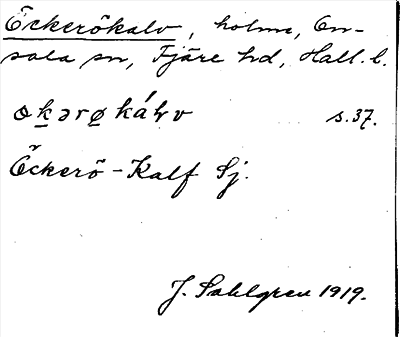 Öckerökalv, holme, On-
sala sn, Fjäre hd, Hall. l.
økərø kálv s. 37.
Öckerö-Kalf Sj.
J. Sahlgren 1919.